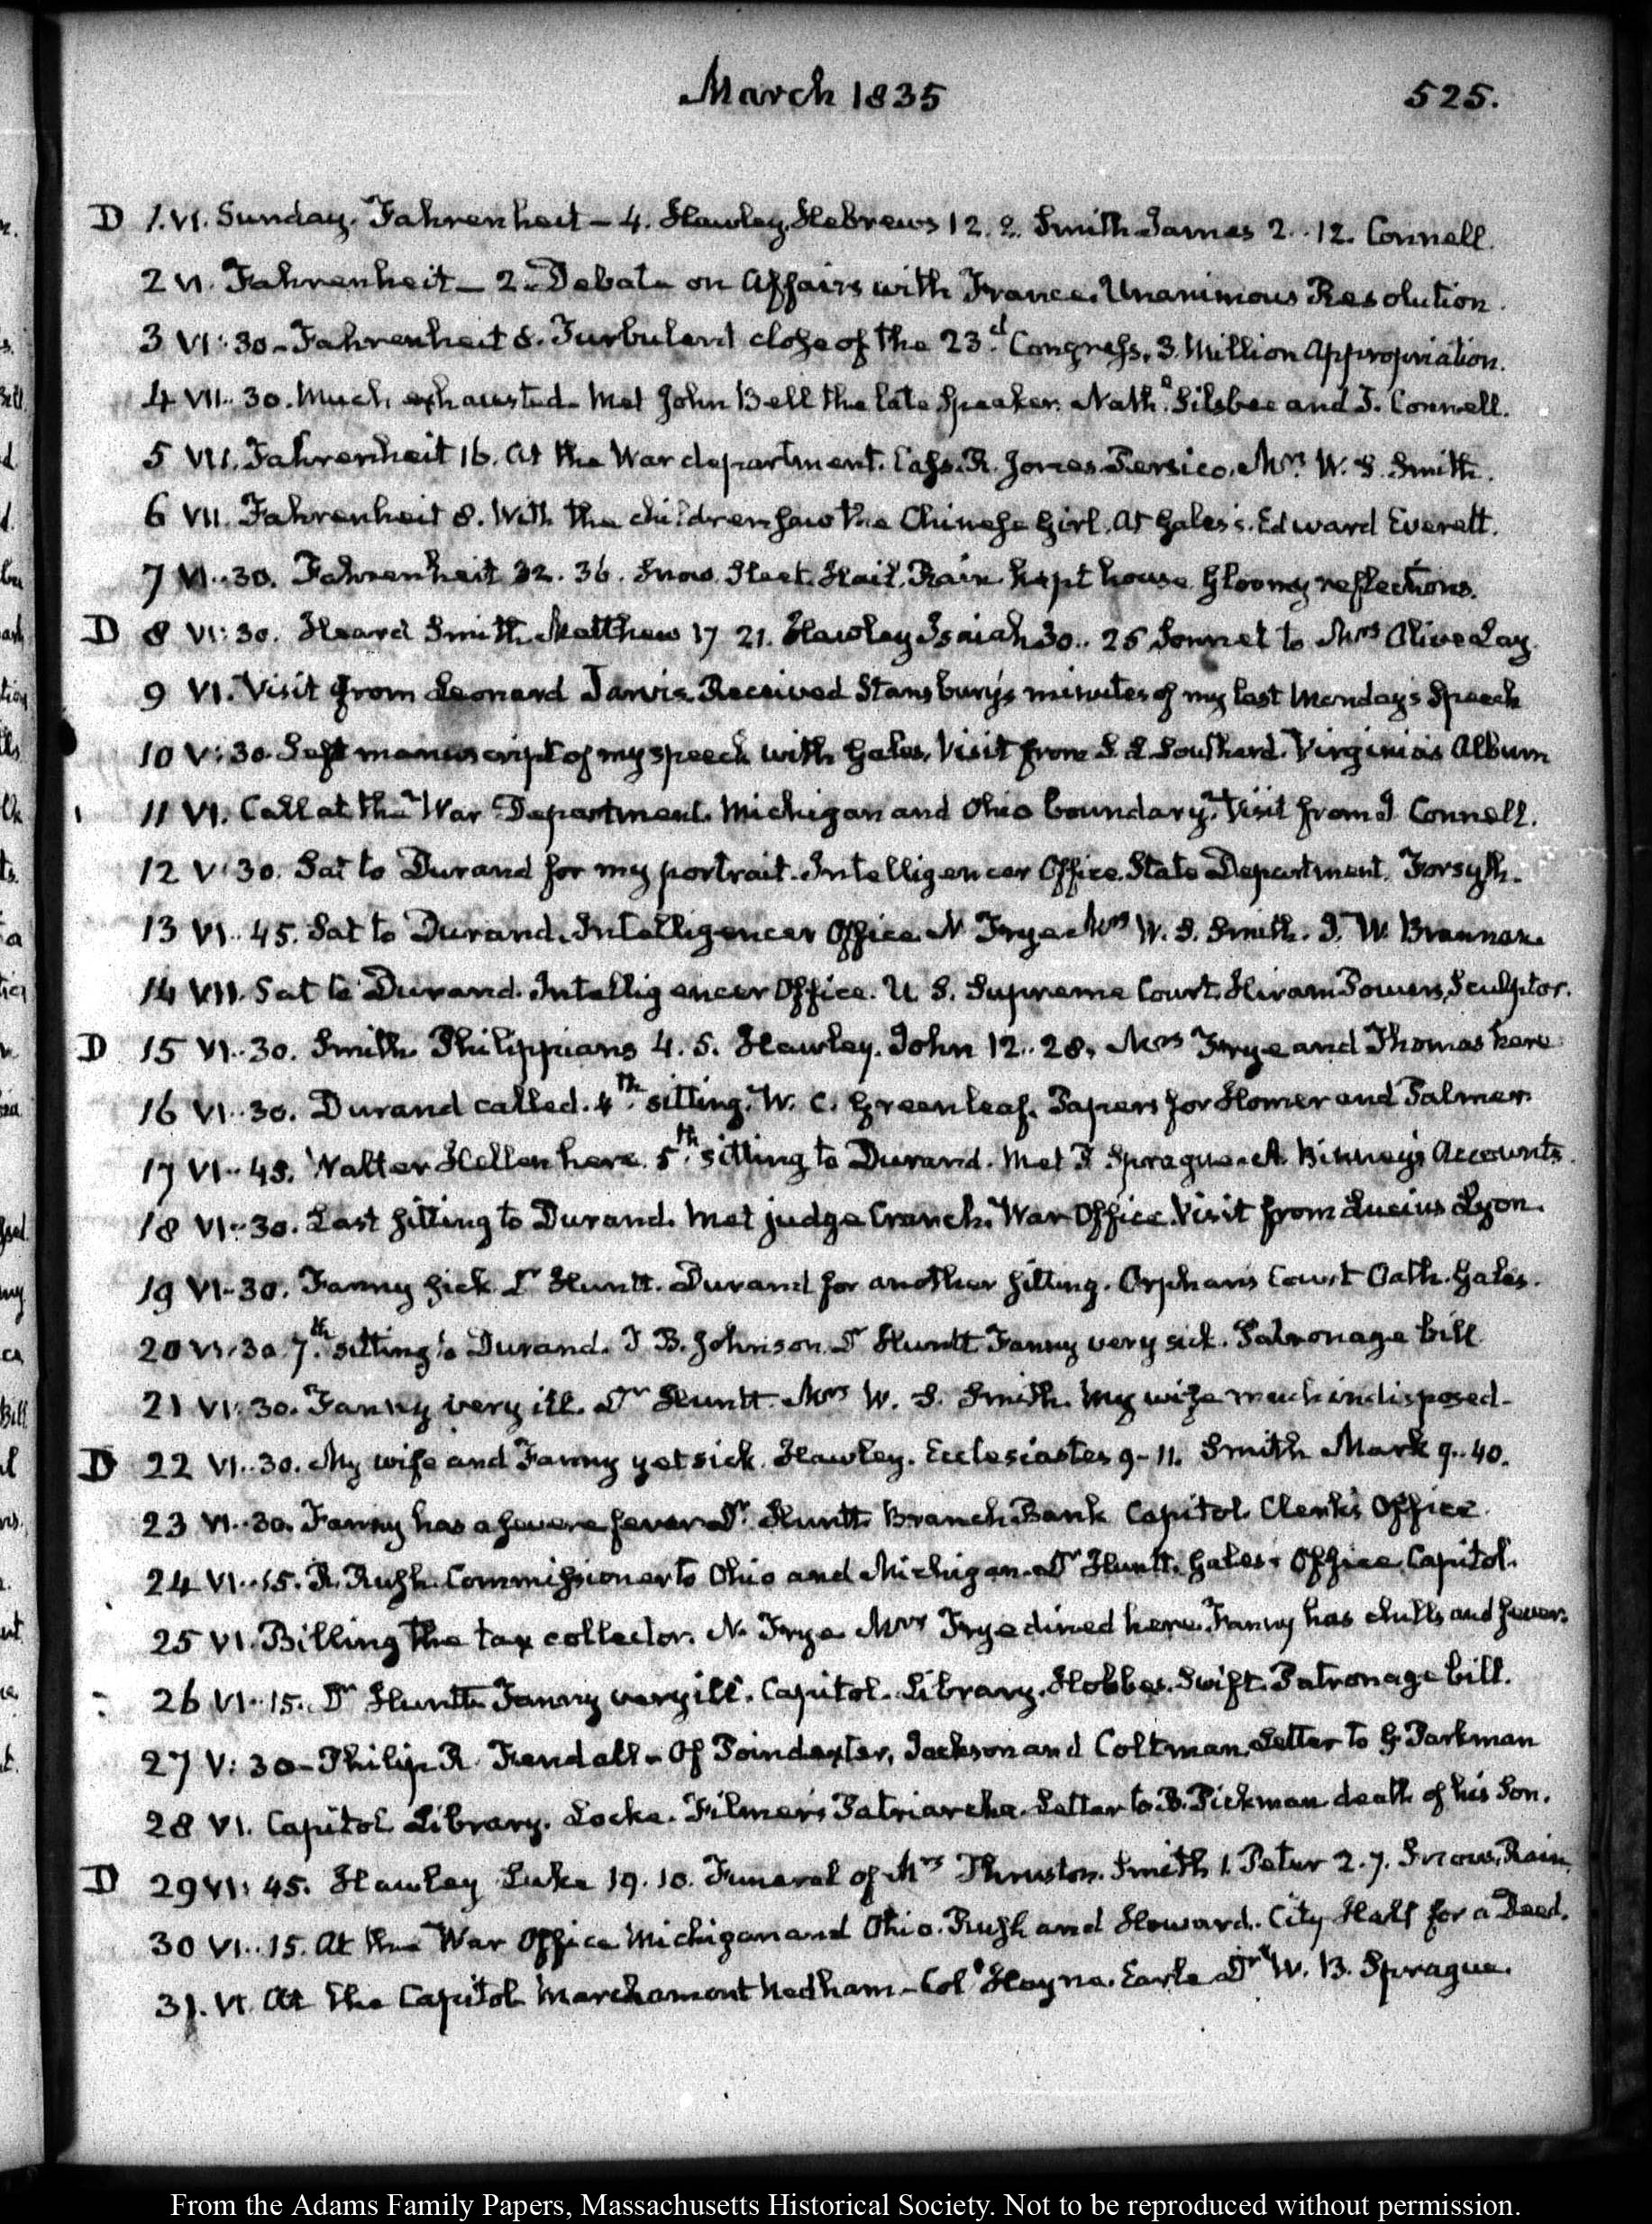 March 1835
525.
D 1. VI. Sunday. Fahrenheit – 4. Hawley, Hebrews 12. 2. Smith James 2..12. Connell.
2 VI. Fahrenheit – 2. Debate on Affairs with France. Unanimous Resolution.
3 VI:30 – Fahrenheit 8. Turbulent close of the 23.d Congress, 3. Million Appropriation.
4 VII..30. Much exhausted – Met John Bell the late Speaker. Nath.l Silsbee and J. Connell.
5 VII. Fahrenheit 16. At the War department. Cass. R. Jones. Persico. Mrs W. S. Smith.
6 VII. Fahrenheit 8. With the children saw the Chinese Girl. At Gales's. Edward Everett.
7 VI..30. Fahrenheit 32. 36. Snow. Sleet. Hail. Rain. Kept house. Gloomy reflections.
D 8 VI:30. Heard Smith. Matthew 17 21. Hawley Isaiah 30..25 Sonnet to Mrs Olive Lay
9 VI. Visit from Leonard Jarvis. Received Stansbury's minutes of my last Monday's Speech
10 V:30. Left manuscript of my speech with Gales. Visit from S. L. Southard. Virginia's Album
11 VI. Call at the War Department. Michigan and Ohio boundary. Visit from J Connell.
12 V:30. Sat to Durand for my portrait. Intelligencer Office. State Department. Forsyth.
13 VI..45. Sat to Durand. Intelligencer Office. N Frye Mrs W. S. Smith. J. W. Brannan.
14 VII. Sat to Durand. Intelligencer Office. U S. Supreme Court. Hiram Powers, Sculptor.
D 15 VI..30. Smith. Philippians 4. 5. Hawley. John 12..28. Mrs Frye and Thomas here
16 VI..30. Durand called. 4.th sitting. W. C. Greenleaf. Papers for Homer and Palmer.
17 VI..45. Walter Hellen here. 5.th sitting to Durand. Met P Sprague. A. Binney's Accounts.
18 VI..30. Last sitting to Durand. Met judge Cranch. War Office. Visit from Lucius Lyon.
19 VI–30. Fanny sick. Dr Huntt. Durand for another sitting. Orphan's Court Oath. Gales.
20 VI:30 7.th sitting to Durand. J B. Johnson. Dr Huntt Fanny very sick. Patronage bill
21 VI:30. Fanny very ill. Dr Huntt. Mrs W. S. Smith. My wife much indisposed –
D 22 VI..30. My wife and Fanny yet sick. Hawley. Ecclesiastes 9–11. Smith Mark 9..40.
23 VI..30. Fanny has a severe fever. Dr Huntt. Branch Bank. Capitol. Clerk's Office.
24 VI..15. R. Rush. Commissioner to Ohio and Michigan. Dr Huntt. Gales's Office. Capitol.
25 VI. Billing the tax collector. N. Frye Mrs Frye dined here. Fanny has chills and fever.
26 VI..15. Dr Huntt. Fanny very ill. Capitol. Library. Hobbes. Swift. Patronage bill.
27 V:30 – Philip R. Fendall – Of Poindexter, Jackson and Coltman. Letter to G. Parkman
28 VI. Capitol Library. Locke. Filmer's Patriarcha. Letter to B. Pickman death of his Son.
D 29 VI:45. Hawley Luke 19. 10. Funeral of Mrs Thruston. Smith 1. Peter 2. 7. Snow, Rain.
30 VI..15. At the War Office Michigan and Ohio. Rush and Howard. City Hall for a Deed.
31. VI. At the Capitol Marchamont Nedham – Col.l Hayne. Earle Dr W. B. Sprague.
From the Adams Family Papers, Massachusetts Historical Society. Not to be reproduced without permission.